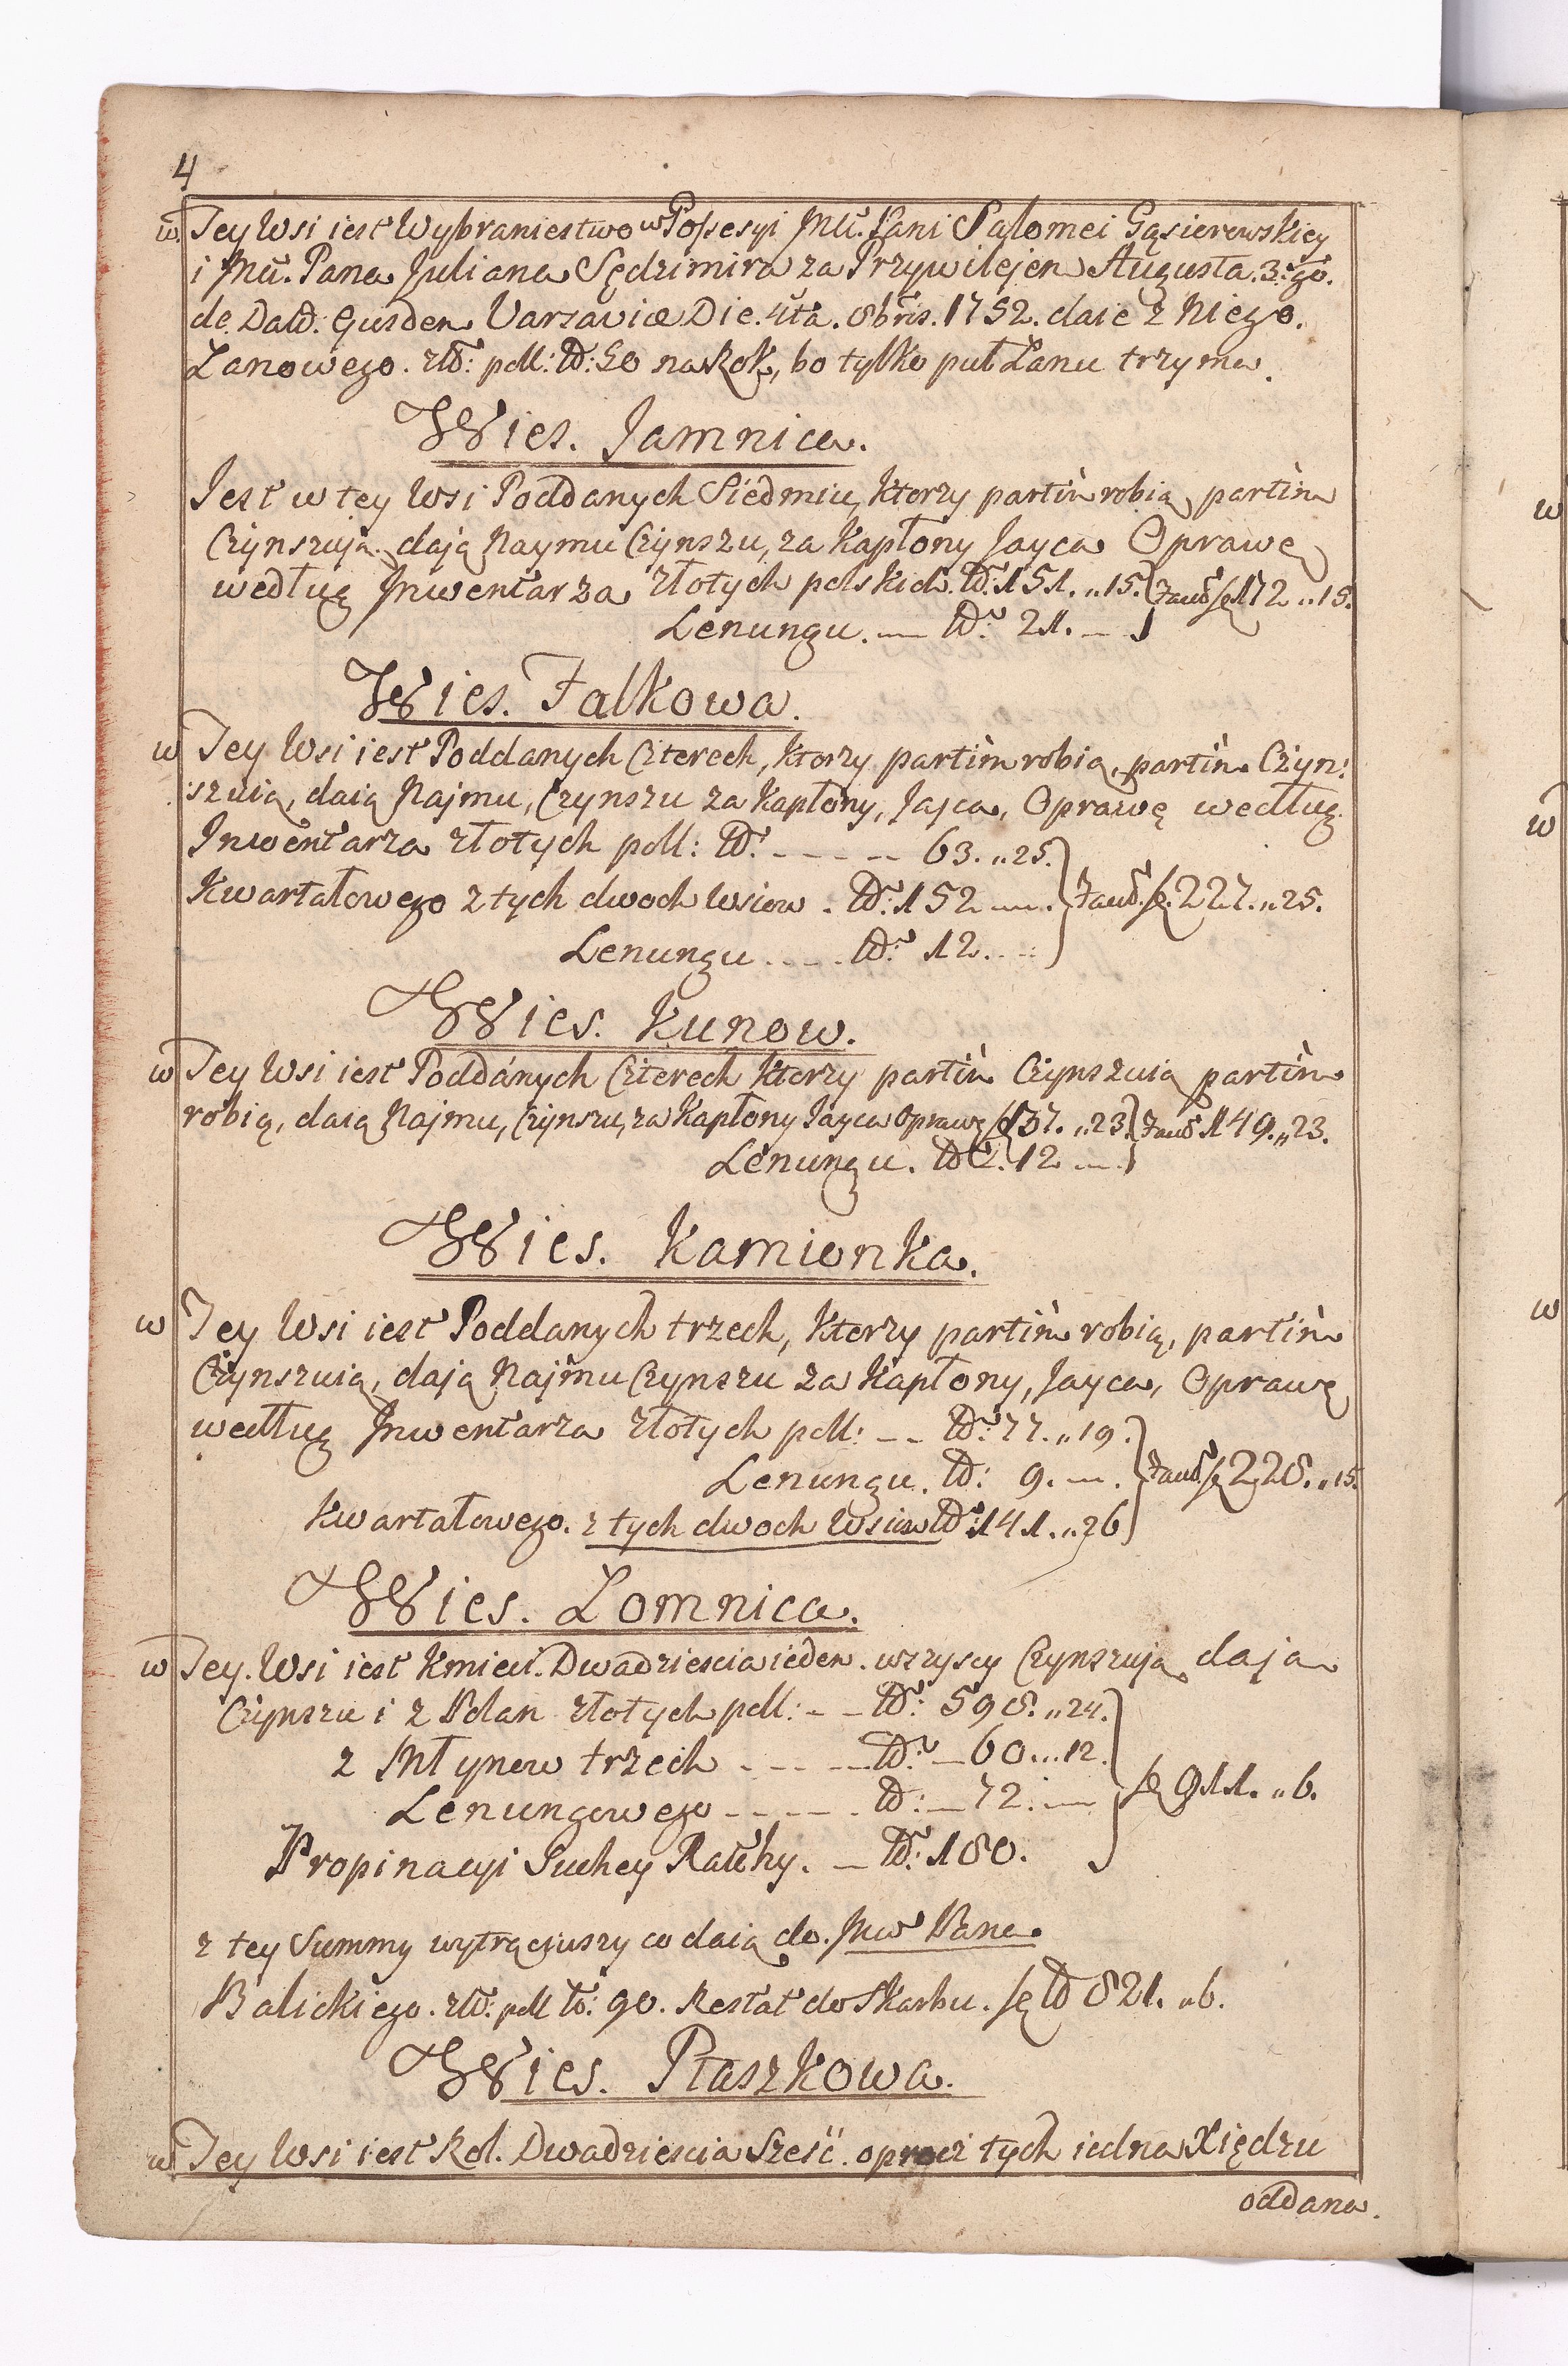 4
w Tey Wsi iest Wybraniectwo w Possesyi Jmć. Pani Salomei Gąsierowskiey
i Jmć. Pana Juliana Sędzimira za Przywilejem Augusta. 3.go.
de Datō. Varsaviæ Die. 4ta. 8bris. 1752. daie z Niego.
Łanowego. złł: poll: 50 na Rok, bo tylko puł Łanu trzyma.
Wies. Jamnica.
Jest w tey Wsi Poddanych Siedmiu, ktorzy partim robią, partim
Czynszują. dają Naymu Czynszu, za Kapłony Jayca Oprawę
według Jnwentarza złotych polskich. 151. „ 15. 172 „ 15.
Lenungu. — 21. —
Wies. Falkowa.
w Tey Wsi iest Poddanych Czterech, ktorzy partim robią, partim Czyn:
szuią, daią Najmu, Czynszu za Kapłony, Jajca, Oprawę według
Inwentarza złotych poll: - - - - 63. „ 25.
Kwartałowego z tych dwoch Wsiow. 152 —. 227. „ 25.
Lenungu . . . . 12. . .
Wies. Kunow.
w Tey Wsi iest Poddanych Czterech ktorzy partim Czynszuią partim
robią, daią Najmu, Czynszu, za Kapłony Jayca Oprawę 137. „ 23. 149. „ 23.
Lenungu. 12 —.
Wies. Kamionka.
w Tey Wsi iest Poddanych trzech, ktorzy partim robią, partim
Czynszuią, dają Najmu Czynszu za Kapłony, Jayca, Oprawę
według Jnwentarza złotych poll: - - 77. „ 19.
Lenungu. 9. —. 228. „ 15.
Kwartałowego. z tych dwoch Wsiow 141. „ 26
Wies. Łomnica.
w Tey. Wsi iest Kmieci. Dwadziescia ieden. wszyscy Czynszują dają
Czynszu i z Polan złotych poll: - - 598. „ 24.
z Młynow trzech - - - - 60 . . . 12.
Lenungowego - - - - - 72. — 911. „ 6.
Propinacyi Suchey Ratthy. — 180.
z tey Summy wytrąciwszy co daią do. Jmć Pana
Balickiego. złł. poll 90. Restat do Skarbu. 821. „ 6.
Wies. Ptaszkowa.
w Tey Wsi iest Rol. Dwadziescia Sześć. oprocz tych iedna Xiędzu
oddana.